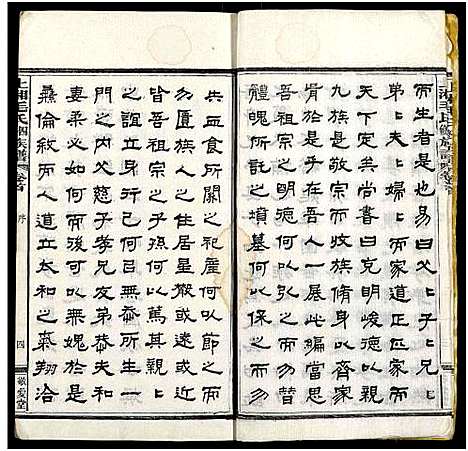 而生者是也易曰父〻子〻兄〻
弟〻夫〻婦〻而家道正正家而
天下定矣尚書曰克明峻德以親
九族是敬宗而收族脩身以齊家
者其在斯乎吾人一展此編當思
若宗若祖之明禋何以弘之而勿替
體魄所託之墳墓何以保之而勿
共血食所關之祀產何以節之而
勿匱族人之住居星散或遠或近
皆吾祖宗之子孫何以篤其親〻
之誼立身行己何以無忝所生一
門之內父慈子孝兄友弟恭夫和
妻柔必如何而後可以無媿於是
彝倫敘而人道立太和之氣翔洽
上湘毛氏四修族譜 卷首 序 四 敬愛堂